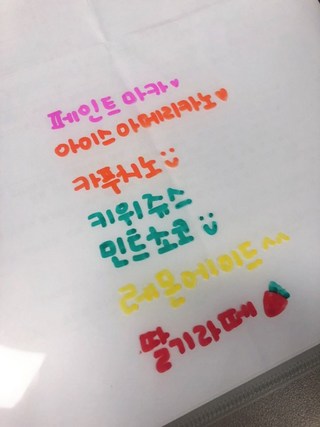 페인트 마카♥
아이스 아메리카노♥
카푸치노 :)
키위쥬스
민트초코 :)
레몬에이드^^
딸기라떼